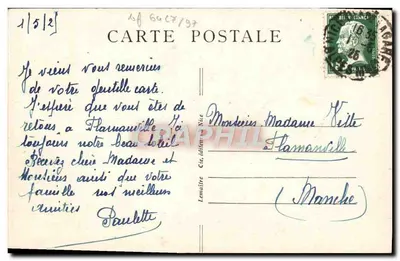 1/5/2
nf 6427/97
CARTE POSTALE
Je viens vous remercier
de votre gentille carte.
J'espère que vous êtes de
retour à Flamanville Ici
toujours notre beau soleil
Recevez chère Madame et
Monsieur ainsi que votre
famille nos meilleurs
amitiés
Paulette
Lemaître Cie, édite Nice
Monsieur Madame
Flamanville
(Manche)
CPAPHIL